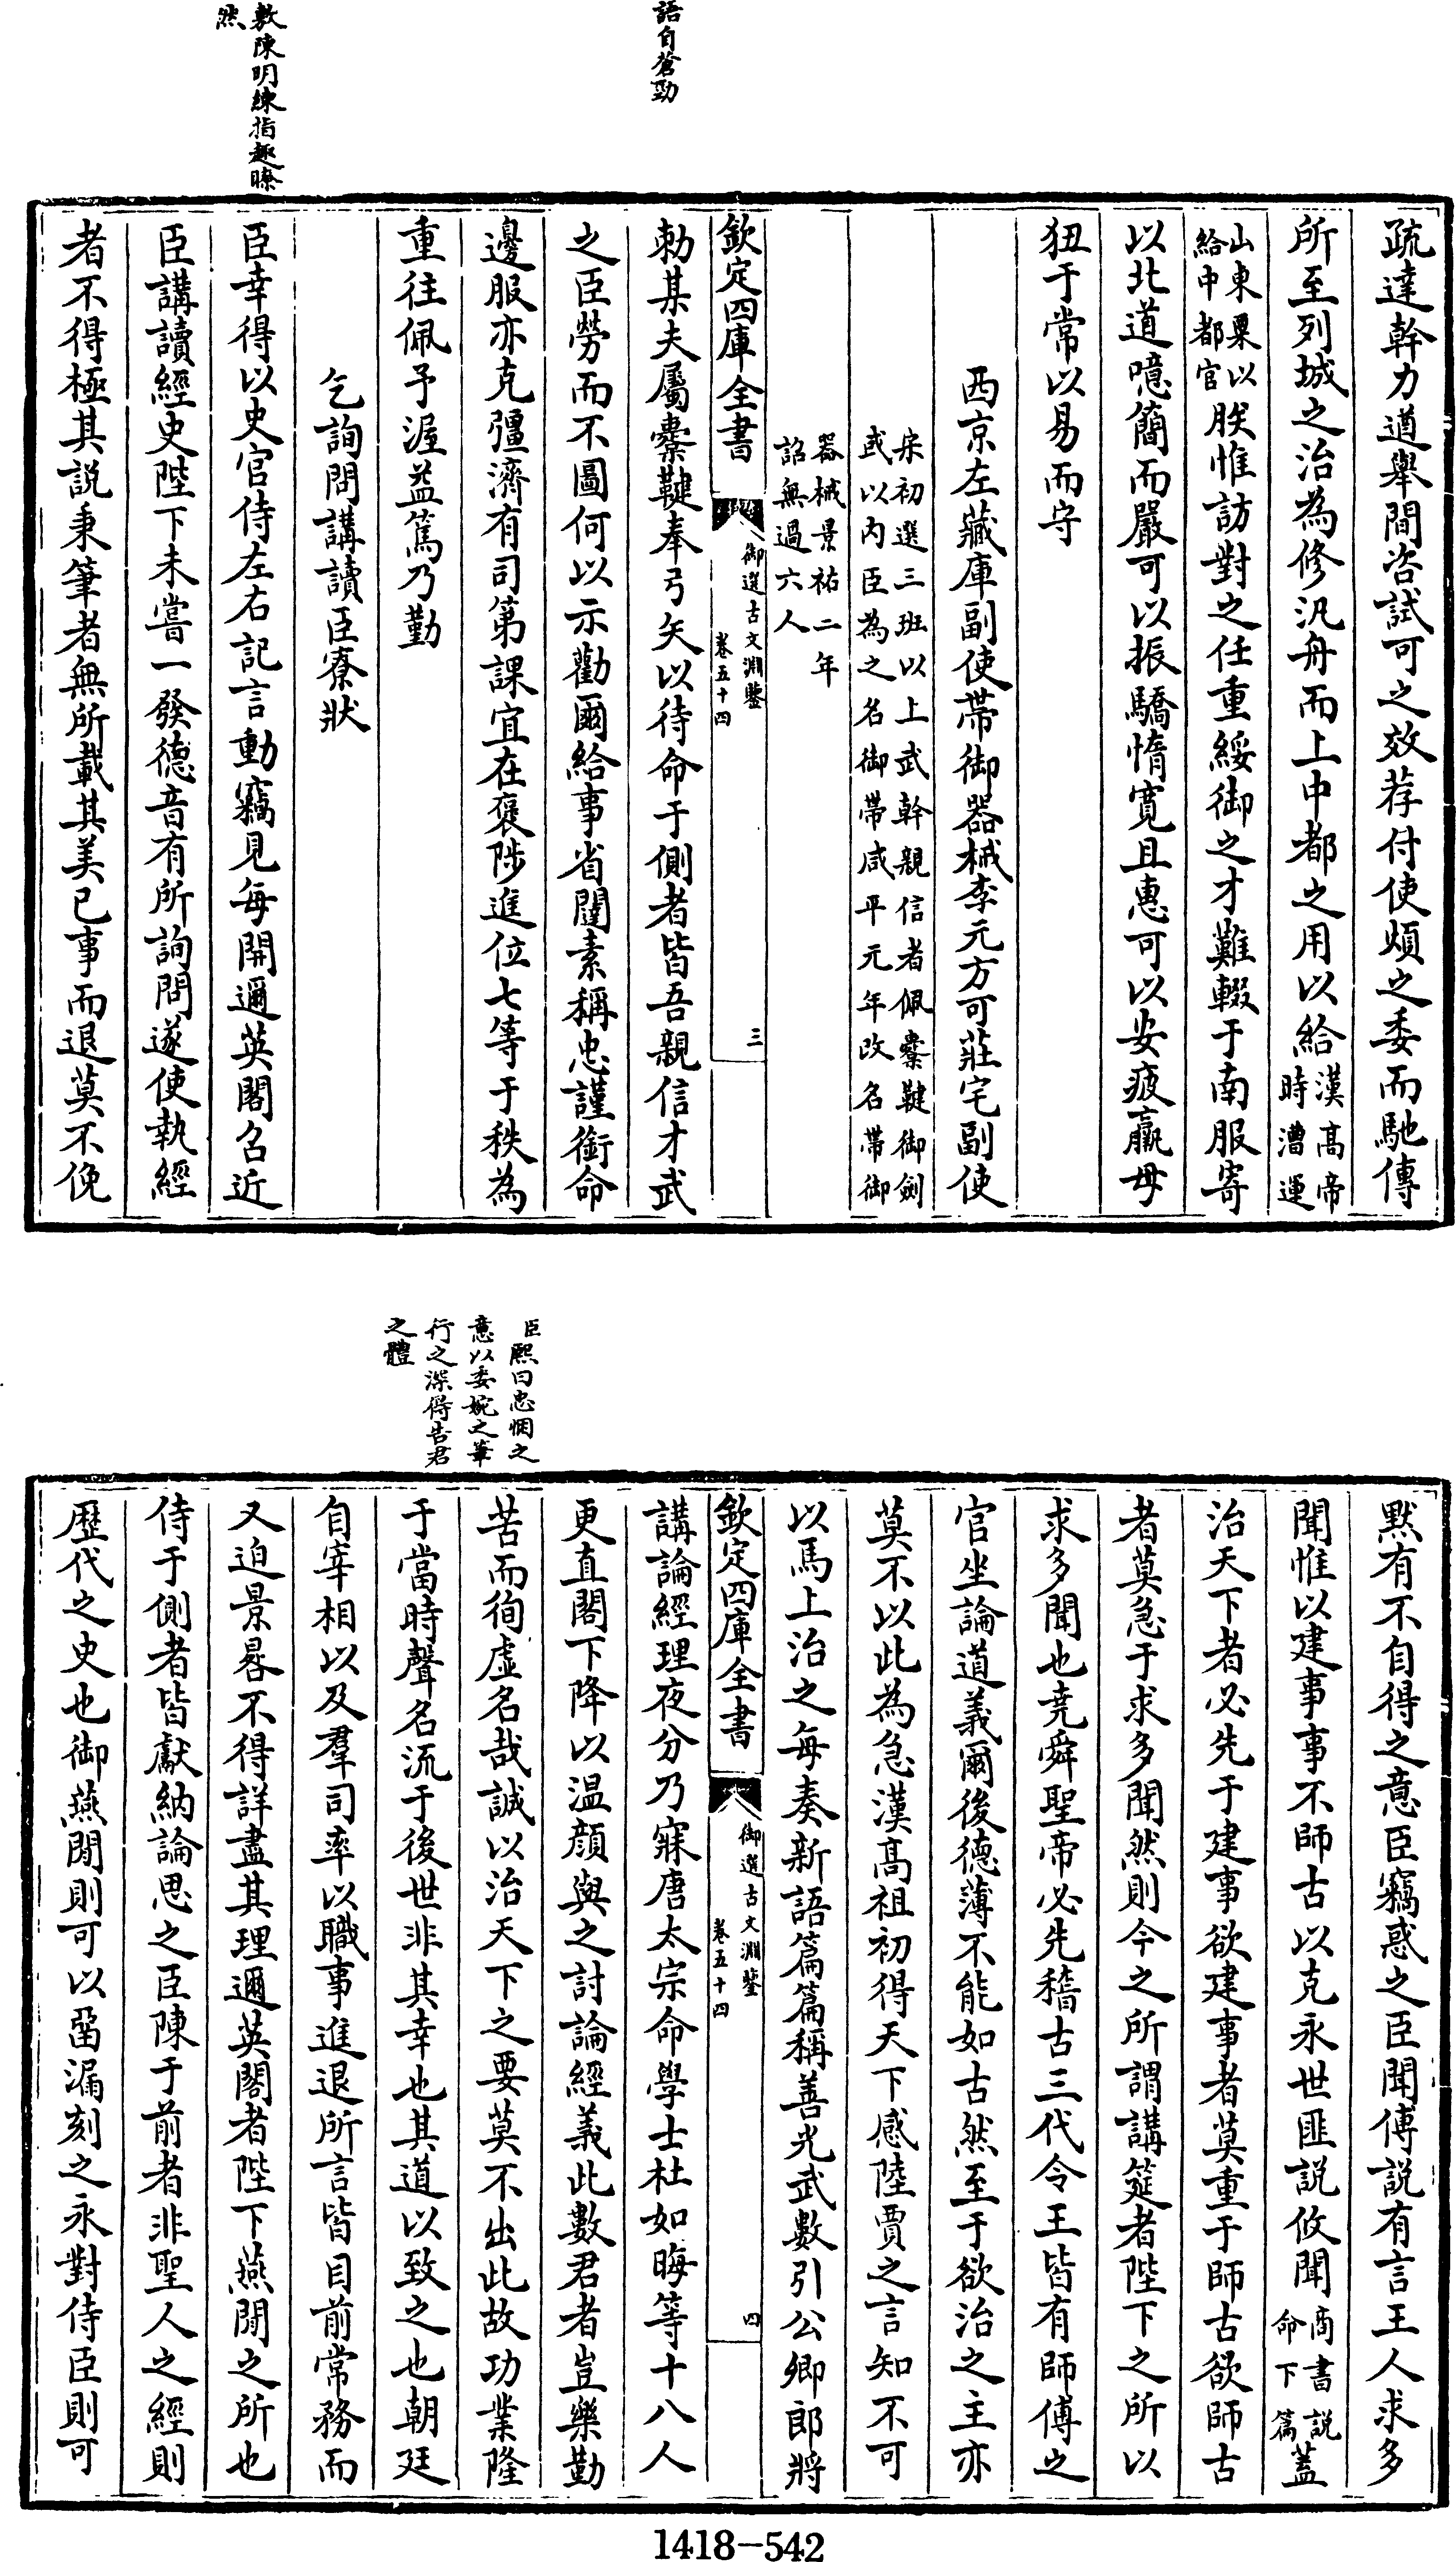 語自蒼勁
敷陳明練指趣瞭
然
疏達幹力遒舉間咨試可之效荐付使煩之委而馳傳
所至列城之治為修汎舟而上中都之用以給漢髙帝時漕運
山東粟以給中都官朕惟訪對之任重綏御之才難輟于南服寄
以北道噫簡而嚴可以振驕惰寛且惠可以安疲羸毋
狃于常以易而守
西京左藏庫副使帶御器械李元方可莊宅副使
宋初選三班以上武幹親信者佩櫜鞬御劍
或以内臣為之名御帶咸平元年改名帶御
器械景祐二年
詔無過六人
欽定四庫全書
御選古文淵鑒
卷五十四
三
勑某夫屬櫜鞬奉弓矢以待命于側者皆吾親信才武
之臣勞而不圖何以示勸爾給事省闥素稱忠謹銜命
邊服亦克彊濟有司第課宜在褒陟進位七等于秩為
重往佩予渥益篤乃勤
乞詢問講讀臣寮狀
臣幸得以史官侍左右記言動竊見每開邇英閣召近
臣講讀經史陛下未嘗一發德音有所詢問遂使執經
者不得極其説秉筆者無所載其美已事而退莫不俛
臣熙曰忠悃之
意以委婉之筆
行之深得告君
之體
黙有不自得之意臣竊惑之臣聞傅説有言王人求多
聞惟以建事事不師古以克永世匪説攸聞商書説命下篇蓋
治天下者必先于建事欲建事者莫重于師古欲師古
者莫急于求多聞然則今之所謂講筵者陛下之所以
求多聞也堯舜聖帝必先稽古三代令王皆有師傅之
官坐論道義爾後德薄不能如古然至于欲治之主亦
莫不以此為急漢髙祖初得天下感陸賈之言知不可
以馬上治之每奏新語篇篇稱善光武數引公卿郎將
欽定四庫全書
御選古文淵鑒
卷五十四
四
講論經理夜分乃寐唐太宗命學士杜如晦等十八人
更直閣下降以温顔與之討論經義此數君者豈樂勤
苦而徇虚名哉誠以治天下之要莫不出此故功業隆
于當時聲名流于後世非其幸也其道以致之也朝廷
自宰相以及羣司率以職事進退所言皆目前常務而
又迫景晷不得詳盡其理邇英閣者陛下燕閒之所也
侍于側者皆獻納論思之臣陳于前者非聖人之經則
歴代之史也御燕閒則可以留漏刻之永對侍臣則可
1418-542